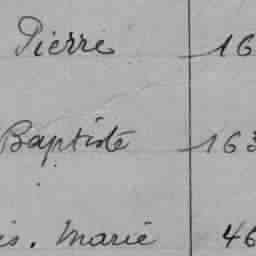 Pierre 16
Baptiste 163
is. Marie 46